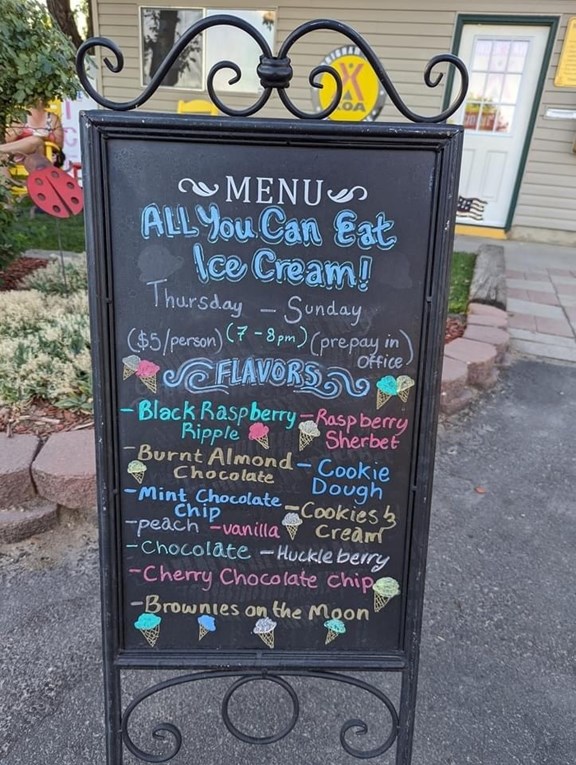 MENU
ALL You Can Eat
Ice Cream!
Thursday – Sunday
($5/person) (7-8pm) (prepay in
office)
FLAVORS
-Black Raspberry
Ripple
-Raspberry
Sherbet
-Burnt Almond
Chocolate
-Cookie
Dough
-Mint Chocolate
Chip
-Cookies &
Cream
-peach -vanilla
-Chocolate -Huckleberry
-Cherry Chocolate chip
-Brownies on the Moon
KOA